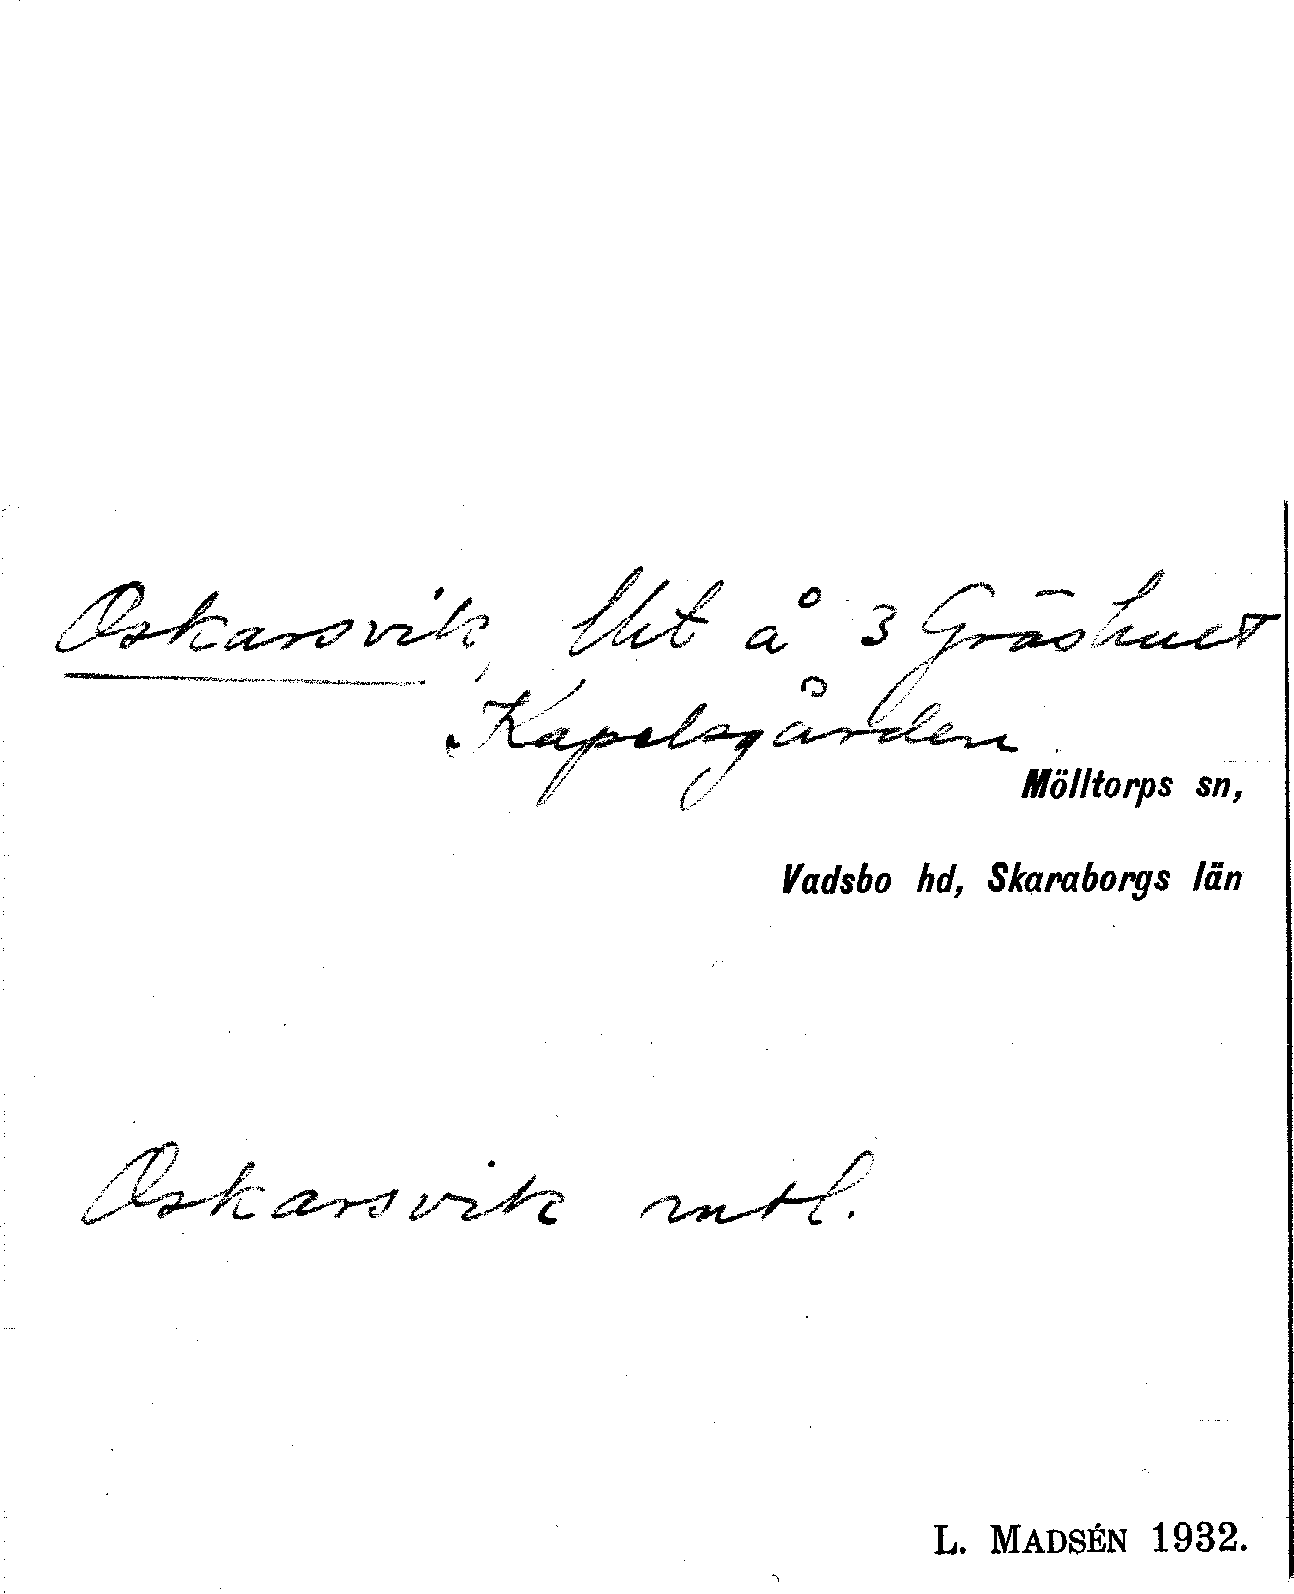 Oskarsvik, lht å 3 Gräshult
Kapelsgården
Mölltorps sn,
Vadsbo hd, Skaraborgs län
Oskarsvik mtl.
L. MADSÉN 1932.